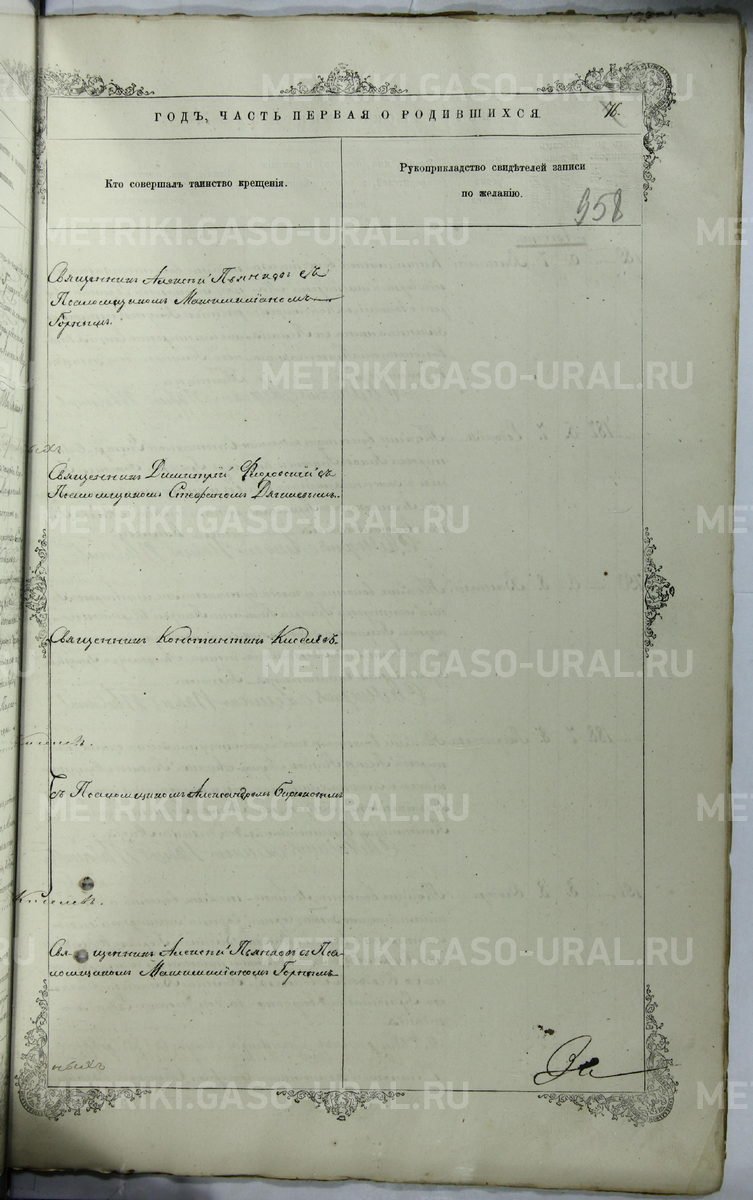 ГОДЪ, ЧАСТЬ ПЕРВАЯ О РОДИВШИХСЯ.
76.
Кто совершалъ таинство крещенія.
Рукоприкладство свидѣтелей записи
по желанію.
958
Священникъ Алексѣй Пьянковъ съ
Псаломщикомъ Максимиліаномъ
Горнымъ.
Священникъ Димитрій Флоровскій съ
Псаломщикомъ Стефаномъ Дягилевымъ.
Священникъ Константинъ Киселевъ
Киселевъ.
съ Псаломщикомъ Александромъ
Киселевъ.
Священникъ Алексѣй Пьянковъ съ Пса-
ломщикомъ Максимиліаномъ Горнымъ
METRIKI.GASO-URAL.RU